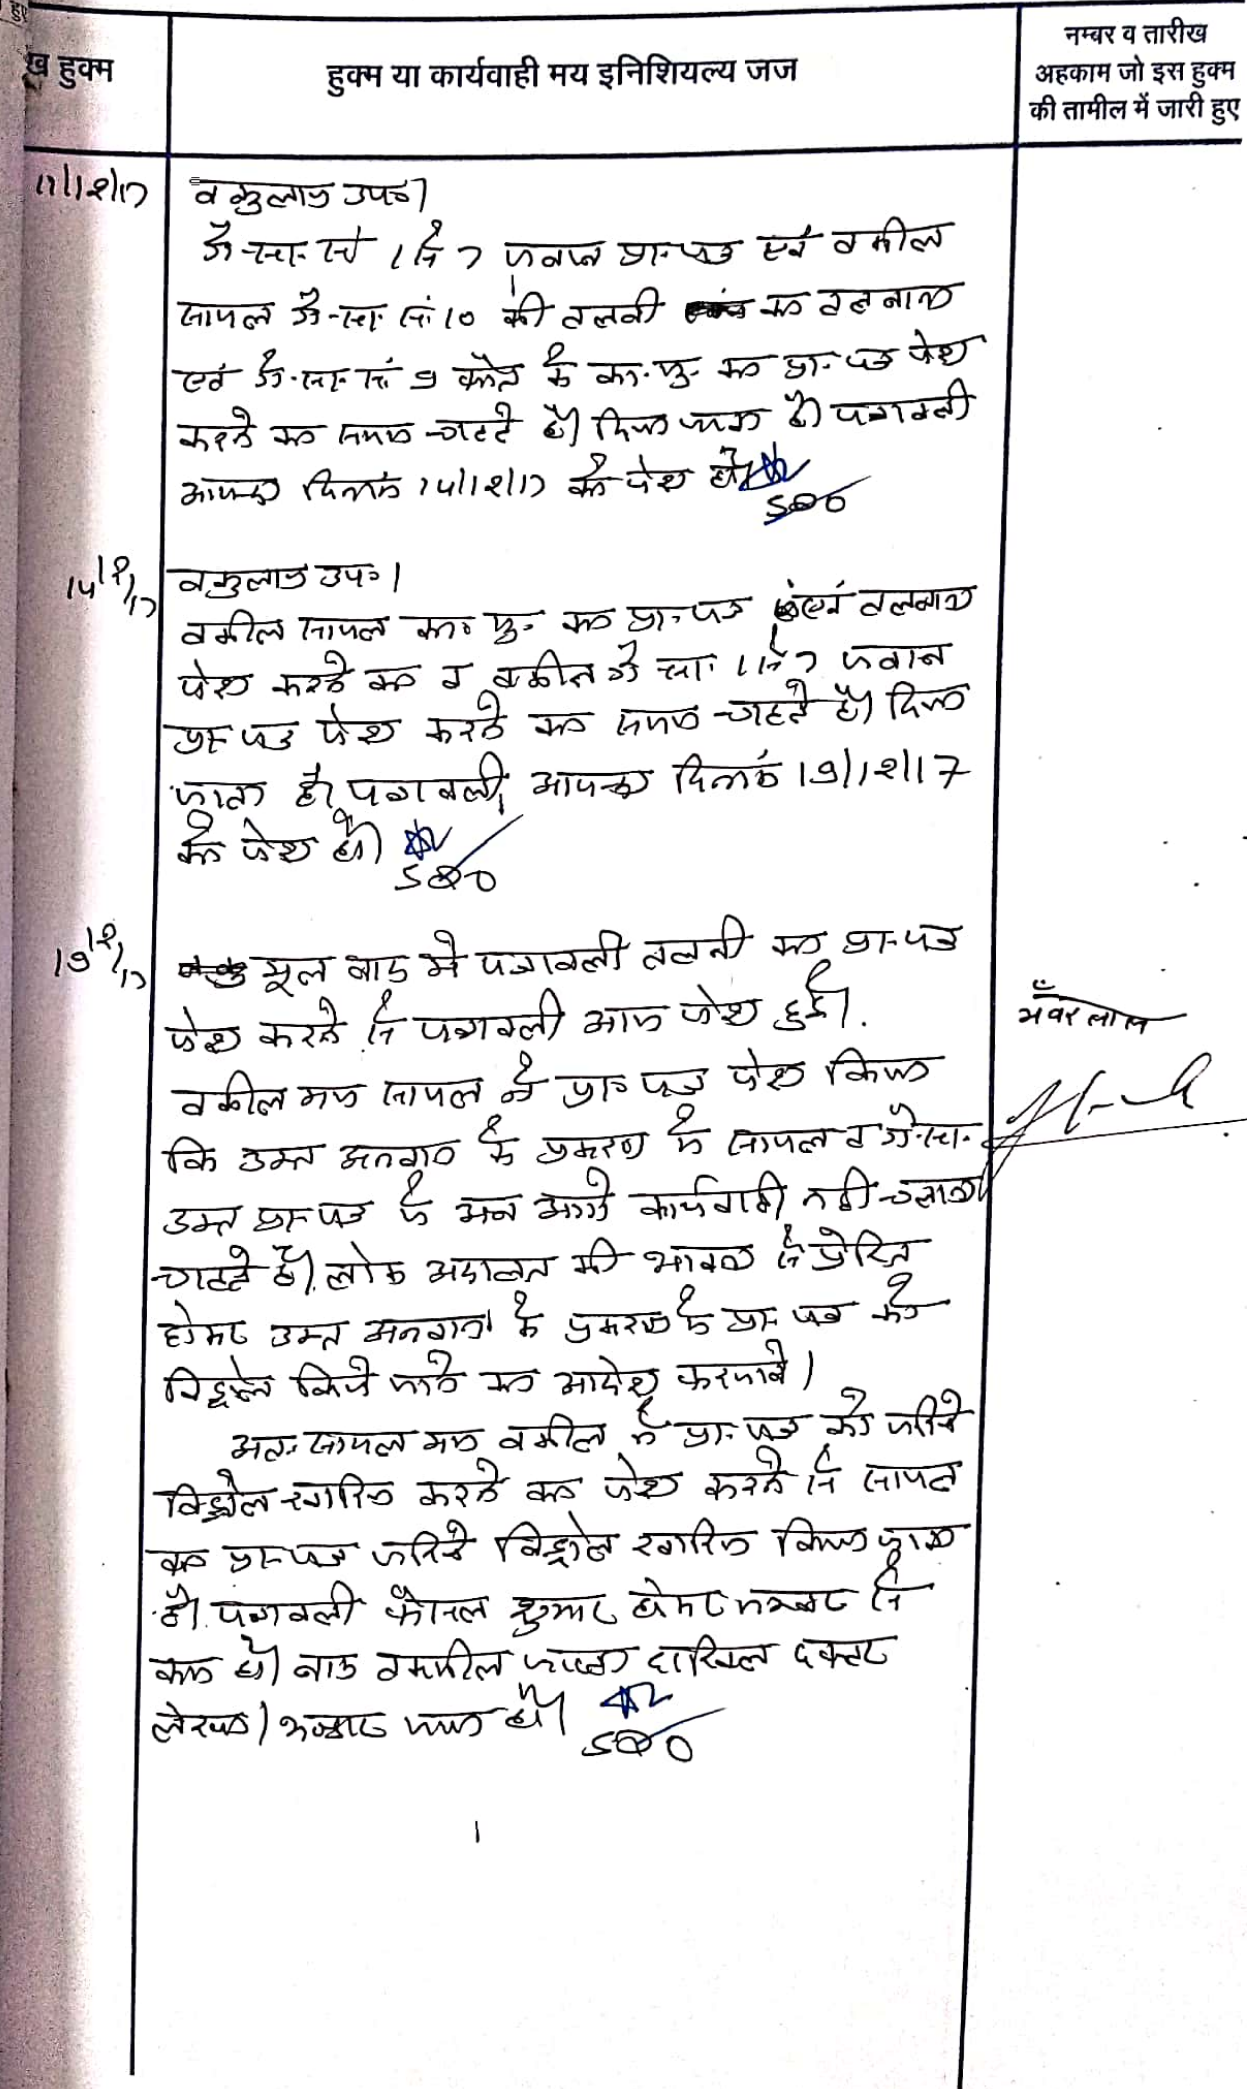 हु
ख हुक्म
हुक्म या कार्यवाही मय इनिशियल्य जज
नम्बर व तारीख
अहकाम जो इस हुक्म
की तामील में जारी हुए
11/12/17
वकुलाय उप०।
गै-सा-सं 1 से 7 जवाब प्रा-पत्र एवं वकील
सायल गै-सा-सं 10 की तलबी का तलबाना
एवं गै-सा-सं 9 फौत के का-मु- का प्रा-पत्र पेश
करने का समय चाहते है। दिया जाता है। पत्रावली
आयन्दा दिनांक 14/12/17 को पेश हो।
SDO
14/12/17
वकुलाय उप०।
वकील सायल का० मु० का प्रा-पत्र एवं तलबाना
पेश करने का व वकील गै सा- 1 से 7 जवाब
प्रा-पत्र पेश करने का समय चाहते है। दिया
जाता है। पत्रावली आयन्दा दिनांक 19/12/17
को पेश हो।
SDO
19/12/17
मूल वाद मे पत्रावली तलबी का प्रा-पत्र
पेश करने से पत्रावली आज पेश हुई।
वकील मय सायल ने प्रा-पत्र पेश किया
कि उक्त अनवान के प्रकरण मे सायल व गै-सा-
उक्त प्रा-पत्र मे अब आगे कार्यवाही नही चलाना
चाहते है। लोक अदालत की भावना से प्रेरित
होकर उक्त अनवान के प्रकरण के प्रा-पत्र को
विड्रोल किये जाने का आदेश करावे।
अतः सायल मय वकील के प्रा-पत्र को जरिये
विड्रोल खारिज करने का पेश करने से सायल
का प्रा-पत्र जरिये विड्रोल खारिज किया जाता
है। पत्रावली फैसल शुमार होकर नम्बर से
कम हो। बाद तकमील जाब्ता दाखिल दफ्तर
हो।
SDO
भँवर लाल